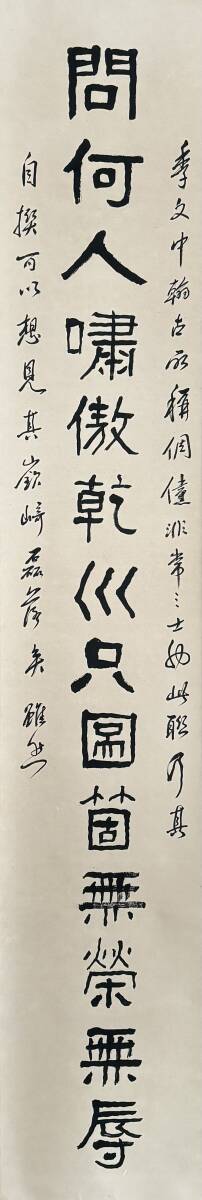 季文中翰古所稱倜儻非常之士也此聯乃其
問何人嘯傲乾巛只圖箇無榮無辱
自撰可以想見其嶔崎磊落矣雖然